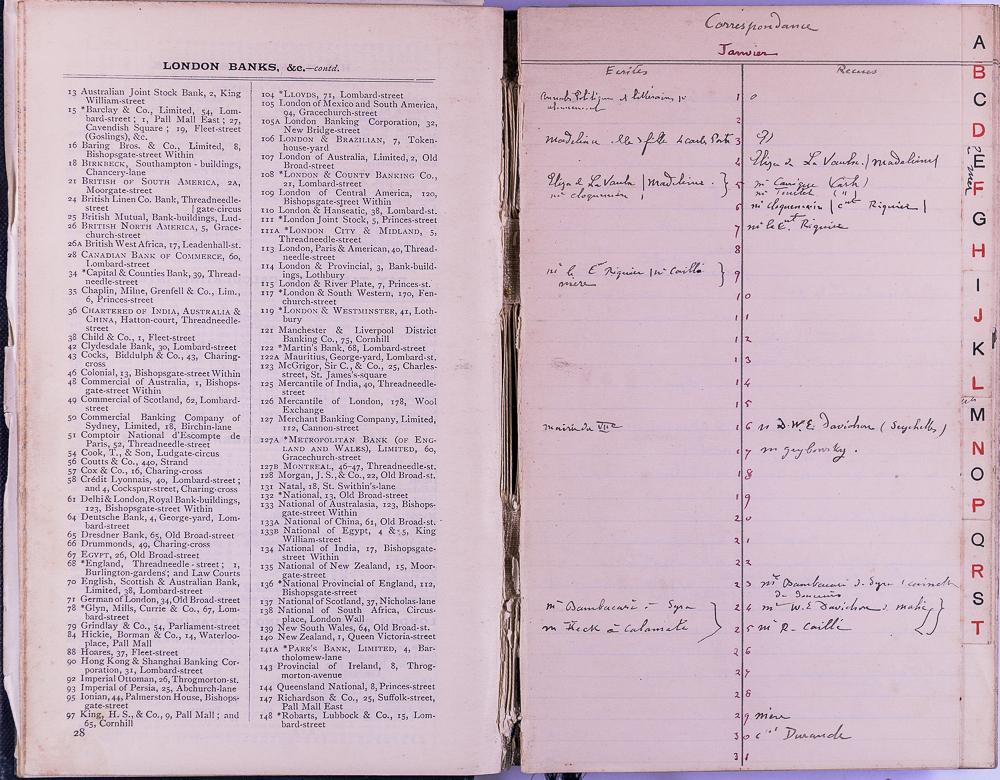 LONDON BANKS, &c.—contd.
13 Australian Joint Stock Bank, 2, King
William-street
15 *Barclay & Co., Limited, 54, Lom-
bard-street; 1, Pall Mall East; 27,
Cavendish Square; 19, Fleet-street
(Goslings), &c.
16 Baring Bros. & Co., Limited, 8,
Bishopsgate-street Within
18 BIRKBECK, Southampton-buildings,
Chancery-lane
21 BRITISH OF SOUTH AMERICA, 2A,
Moorgate-street
24 British Linen Co. Bank, Threadneedle-
street [gate-circus
25 British Mutual, Bank-buildings, Lud-
26 BRITISH NORTH AMERICA, 5, Grace-
church-street
26A British West Africa, 17, Leadenhall-st.
28 CANADIAN BANK OF COMMERCE, 60,
Lombard-street
34 *Capital & Counties Bank, 39, Thread-
needle-street
35 Chaplin, Milne, Grenfell & Co., Lim.,
6, Princes-street
36 CHARTERED OF INDIA, AUSTRALIA &
CHINA, Hatton-court, Threadneedle-
street
38 Child & Co., 1, Fleet-street
42 Clydesdale Bank, 30, Lombard-street
43 Cocks, Biddulph & Co., 43, Charing-
cross
46 Colonial, 13, Bishopsgate-street Within
48 Commercial of Australia, 1, Bishops-
gate-street Within
49 Commercial of Scotland, 62, Lombard-
street
50 Commercial Banking Company of
Sydney, Limited, 18, Birchin-lane
51 Comptoir National d'Escompte de
Paris, 52, Threadneedle-street
54 Cook, T., & Son, Ludgate-circus
56 Coutts & Co., 440, Strand
57 Cox & Co., 16, Charing-cross
58 Crédit Lyonnais, 40, Lombard-street;
and 4, Cockspur-street, Charing-cross
61 Delhi & London, Royal Bank-buildings,
123, Bishopsgate-street Within
64 Deutsche Bank, 4, George-yard, Lom-
bard-street
65 Dresdner Bank, 65, Old Broad-street
66 Drummonds, 49, Charing-cross
67 EGYPT, 26, Old Broad-street
68 *England, Threadneedle-street; 1,
Burlington-gardens; and Law Courts
70 English, Scottish & Australian Bank,
Limited, 38, Lombard-street
71 German of London, 34, Old Broad-street
78 *Glyn, Mills, Currie & Co., 67, Lom-
bard-street
79 Grindlay & Co., 54, Parliament-street
84 Hickie, Borman & Co., 14, Waterloo-
place, Pall Mall
88 Hoares, 37, Fleet-street
90 Hong Kong & Shanghai Banking Cor-
poration, 31, Lombard-street
92 Imperial Ottoman, 26, Throgmorton-st.
93 Imperial of Persia, 25, Abchurch-lane
95 Ionian, 44, Palmerston House, Bishops-
gate-street
97 King, H. S., & Co., 9, Pall Mall; and
65, Cornhill
28
104 *LLOYDS, 71, Lombard-street
105 London of Mexico and South America,
94, Gracechurch-street
105A London Banking Corporation, 32,
New Bridge-street
106 LONDON & BRAZILIAN, 7, Token-
house-yard
107 London of Australia, Limited, 2, Old
Broad-street
108 *LONDON & COUNTY BANKING CO.,
21, Lombard-street
109 London of Central America, 120,
Bishopsgate-street Within
110 London & Hanseatic, 38, Lombard-st.
111 *London Joint Stock, 5, Princes-street
111A *LONDON CITY & MIDLAND, 5,
Threadneedle-street
113 London, Paris & American, 40, Thread-
needle-street
114 London & Provincial, 3, Bank-build-
ings, Lothbury
115 London & River Plate, 7, Princes-st.
117 *London & South Western, 170, Fen-
church-street
119 *LONDON & WESTMINSTER, 41, Loth-
bury
121 Manchester & Liverpool District
Banking Co., 75, Cornhill
122 *Martin's Bank, 68, Lombard-street
122A Mauritius, George-yard, Lombard-st.
123 McGrigor, Sir C., & Co., 25, Charles-
street, St. James's-square
125 Mercantile of India, 40, Threadneedle-
street
126 Mercantile of London, 178, Wool
Exchange
127 Merchant Banking Company, Limited,
112, Cannon-street
127A *METROPOLITAN BANK (OF ENG-
LAND AND WALES), LIMITED, 60,
Gracechurch-street
127B MONTREAL, 46-47, Threadneedle-st.
128 Morgan, J. S., & Co., 22, Old Broad-st.
131 Natal, 18, St. Swithin's-lane
132 *National, 13, Old Broad-street
133 National of Australasia, 123, Bishops-
gate-street Within
133A National of China, 61, Old Broad-st.
133B National of Egypt, 4 & 5, King
William-street
134 National of India, 17, Bishopsgate-
street Within
135 National of New Zealand, 15, Moor-
gate-street
136 *National Provincial of England, 112,
Bishopsgate-street
137 National of Scotland, 37, Nicholas-lane
138 National of South Africa, Circus-
place, London Wall
139 New South Wales, 64, Old Broad-st.
140 New Zealand, 1, Queen Victoria-street
141A *PARR'S BANK, LIMITED, 4, Bar-
tholomew-lane
143 Provincial of Ireland, 8, Throg-
morton-avenue
144 Queensland National, 8, Princes-street
147 Richardson & Co., 25, Suffolk-street,
Pall Mall East
148 *Robarts, Lubbock & Co., 15, Lom-
bard-street
Correspondance
Janvier
Ecrites Recues
Politique et littéraires
1 0
2
Madeleine 3
4 Eliza de La Vaulx / Madeleine /
Eliza de La Vaulx / Madeleine. } 5
6 Riquier /
7 Riquier
8
Riquier / Mr Cailli } 9
mère
10
11
12
13
14
15
mairie du VIIe 16 W.E. Davidson (Seychelles)
17
18
19
20
21
22
23 Mr Bambacari à Syra
Mr Bambacari à Syra } 24 Mr W.E. Davidson à Mahé }
Fleck à Calamata 25 Mr R. Cailli
26
27
28
29 mère
30 Durande
31
A
B
C
D
E
F
G
H
I
J
K
L
M
N
O
P
Q
R
S
T